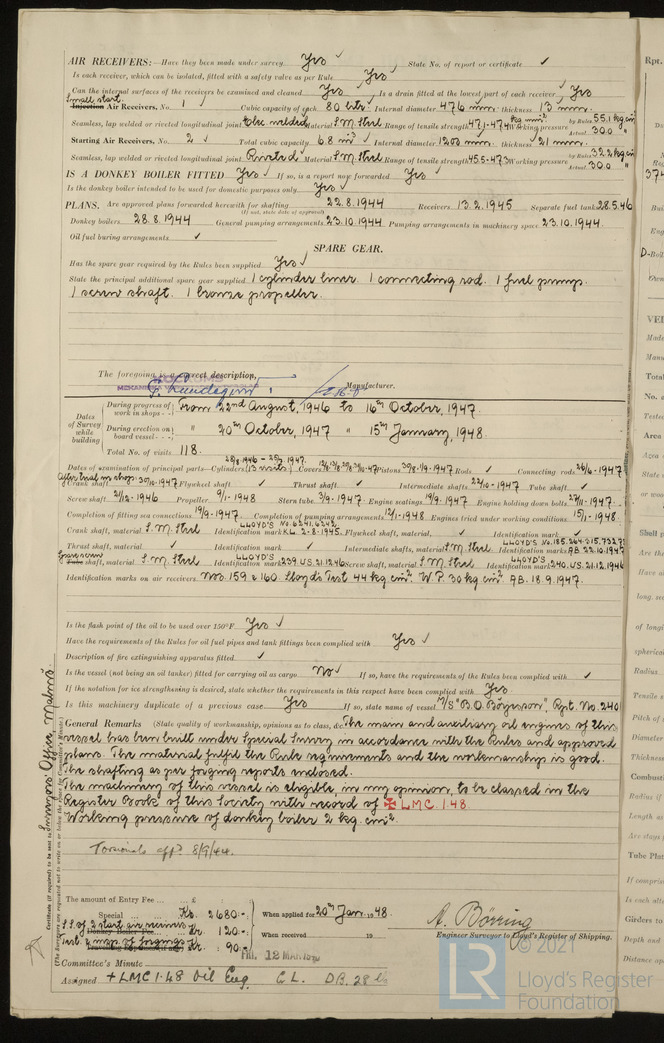 AIR RECEIVERS:—Have they been made under survey Yes ✓ State No. of report or certificate ✓
Is each receiver, which can be isolated, fitted with a safety valve as per Rule Yes ✓
Can the internal surfaces of the receivers be examined and cleaned Yes ✓ Is a drain fitted at the lowest part of each receiver Yes
Small start
Injection Air Receivers, No. 1 ✓ Cubic capacity of each 80 litr ✓ Internal diameter 476 mm. thickness 13 mm.
Seamless, lap welded or riveted longitudinal joint Elec welded Material S.M. Steel Range of tensile strength 47.1-47.4 kg mm² Working pressure by Rules 55.1 kg cm² Actual 30.0 "
Starting Air Receivers, No. 2 ✓ Total cubic capacity 6.8 m³ ✓ Internal diameter 1200 mm. thickness 21 mm.
Seamless, lap welded or riveted longitudinal joint Riveted ✓ Material S.M. Steel Range of tensile strength 45.5-47.3 Working pressure by Rules 32.2 kg cm² Actual 30.0 "
IS A DONKEY BOILER FITTED Yes ✓ If so, is a report now forwarded Yes ✓
Is the donkey boiler intended to be used for domestic purposes only Yes ✓
PLANS. Are approved plans forwarded herewith for shafting 22.8.1944 Receivers 13.2.1945 Separate fuel tanks 28.5.46
(If not, state date of approval)
Donkey boilers 28.8.1944 General pumping arrangements 23.10.1944 Pumping arrangements in machinery space 23.10.1944.
Oil fuel burning arrangements ✓
SPARE GEAR.
Has the spare gear required by the Rules been supplied Yes ✓
State the principal additional spare gear supplied 1 cylinder liner. 1 connecting rod. 1 fuel pump.
1 screw shaft. 1 bronze propeller.
The foregoing is a correct description,
Manufacturer.
Dates of Survey while building
During progress of work in shops - - From 22nd August, 1946 to 16th October, 1947.
During erection on board vessel - - " 20th October, 1947 " 15th January, 1948.
Total No. of visits 118.
Dates of examination of principal parts—Cylinders (13 visits) Covers Pistons Rods ✓ Connecting rods 26/6-1947
Crank shaft Flywheel shaft ✓ Thrust shaft ✓ Intermediate shafts 22/10-1947 Tube shaft ✓
Screw shaft 21/12-1946 Propeller 9/1-1948 Stern tube 3/9-1947 Engine seatings 19/9-1947. Engine holding down bolts 27/11-1947
Completion of fitting sea connections 19/9-1947 Completion of pumping arrangements 12/1-1948 Engines tried under working conditions 15/1-1948.
Crank shaft, material S.M. Steel Identification mark LLOYD'S No. 6241.6242. KL. 2-8-1945. Flywheel shaft, material ✓ Identification mark ✓
Thrust shaft, material ✓ Identification mark ✓ Intermediate shafts, material S.M. Steel Identification marks AB. 22.10.1947
Spare screw
Tube shaft, material S.M. Steel Identification mark LLOYD'S 239.US.21.12.46 Screw shaft, material S.M. Steel Identification mark LLOYD'S 240.US.21.12.1946
Identification marks on air receivers Nos. 159 & 160. Lloyd's Test 44 kg cm². W.P. 30 kg cm² AB. 18.9.1947.
Is the flash point of the oil to be used over 150°F. Yes ✓
Have the requirements of the Rules for oil fuel pipes and tank fittings been complied with Yes ✓
Description of fire extinguishing apparatus fitted ✓
Is the vessel (not being an oil tanker) fitted for carrying oil as cargo No ✓ If so, have the requirements of the Rules been complied with ✓
If the notation for ice strengthening is desired, state whether the requirements in this respect have been complied with Yes
Is this machinery duplicate of a previous case Yes If so, state name of vessel M/S "B.O. Börjesson" Rpt. No. 240
General Remarks (State quality of workmanship, opinions as to class, &c. The main and auxiliary oil engines of this
vessel has been built under Special Survey in accordance with the Rules and approved
plans. The material fulfil the Rule requirements and the workmanship is good.
The shafting as per forging reports enclosed.
The machinery of this vessel is eligible, in my opinion, to be classed in the
Register Book of this Society with record of ✠ LMC. 1.48.
Working pressure of donkey boiler 2 kg. cm².
Torsionals appd. 8/9/44.
Surveyors' Office, Malmö.
Certificate (if required) to be sent to
(The Surveyors are requested not to write on or below the space for Committee's Minute.)
The amount of Entry Fee ... £ :
Special ... Kr. 2680:-
S.S. of 2 start air receivers
Donkey Boiler Fee Kr. 120:-
Test & insp. of forgings Kr. 90:-
When applied for 20th Jan. 1948
When received 19
A. Börring
Engineer Surveyor to Lloyd's Register of Shipping.
FRI. 12 MAR 1948
Committee's Minute
Assigned + LMC 1.48 Oil Eng C.L. DB. 28 lb
© 2021
Lloyd's Register
Foundation
LR